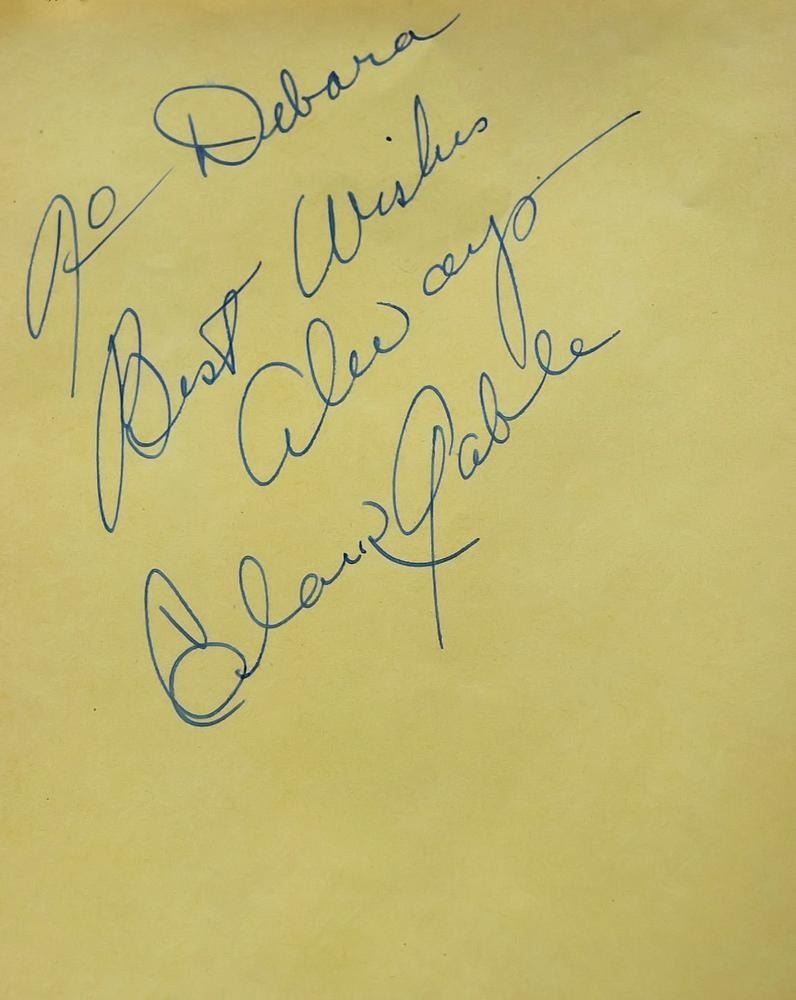 To Debara
Best Wishes
Always
Clark Gable